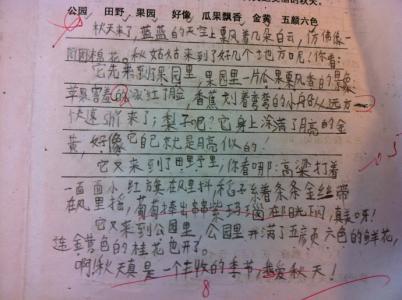 公园 田野 果园 好像 瓜果飘香 金黄 五颜六色
秋天来了,蓝蓝的天空上飘着几朵白云,仿佛像
棉花。秋姑姑来到了好几个地方呢!你看:
它先来到了果园里,果园里一片瓜果飘香的景象,
苹果害羞的涨红了脸,香蕉划着弯弯的小船从远方
快速 来了;梨子呢?它身上涂满了月亮的金
黄,好像它自己就是月亮似的!
它又来到了田野里,你看哪:高粱打着
一面面小红旗在风里抖,稻子系着条条金丝带
在风里摇,葡萄捧出串串紫玛瑙在阳光下闪,真美呀!
它又来到公园里,公园里开满了五颜六色的鲜花,
连金黄色的桂花也开了。
啊!秋天真是一个丰收的季节,我爱秋天!
8